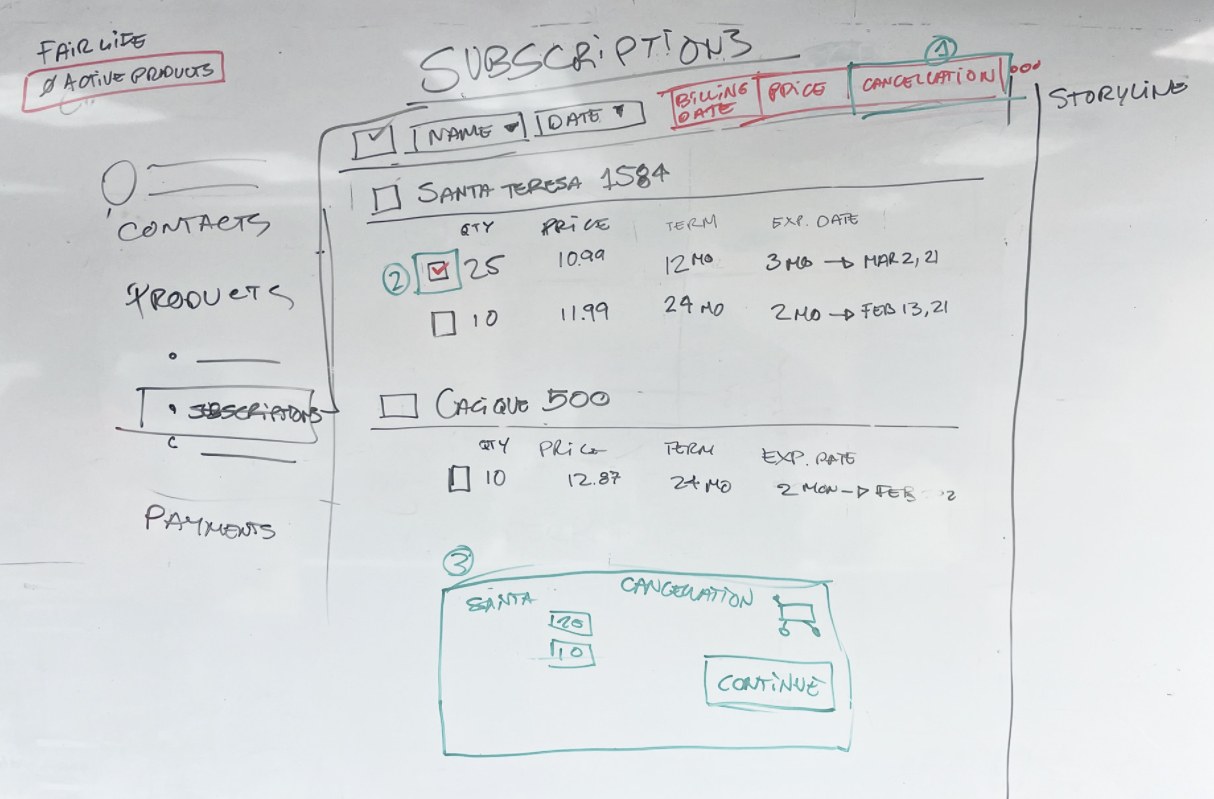 FAIR LIFE
Ø ACTIVE PRODUCTS
SUBSCRIPTIONS
1
NAME
DATE
BILLING DATE
PRICE
CANCELLATION
STORYLINE
SANTA TERESA 1584
CONTACTS
QTY PRICE TERM EXP. DATE
2 25 10.99 12 MO 3 MO → MAR 2, 21
PRODUCTS
10 11.99 24 MO 2 MO → FEB 13, 21
SUBSCRIPTIONS
CACIQUE 500
QTY PRICE TERM EXP. DATE
10 12.87 24 MO 2 MON → FEB
PAYMENTS
3
SANTA
CANCELLATION
10
CONTINUE